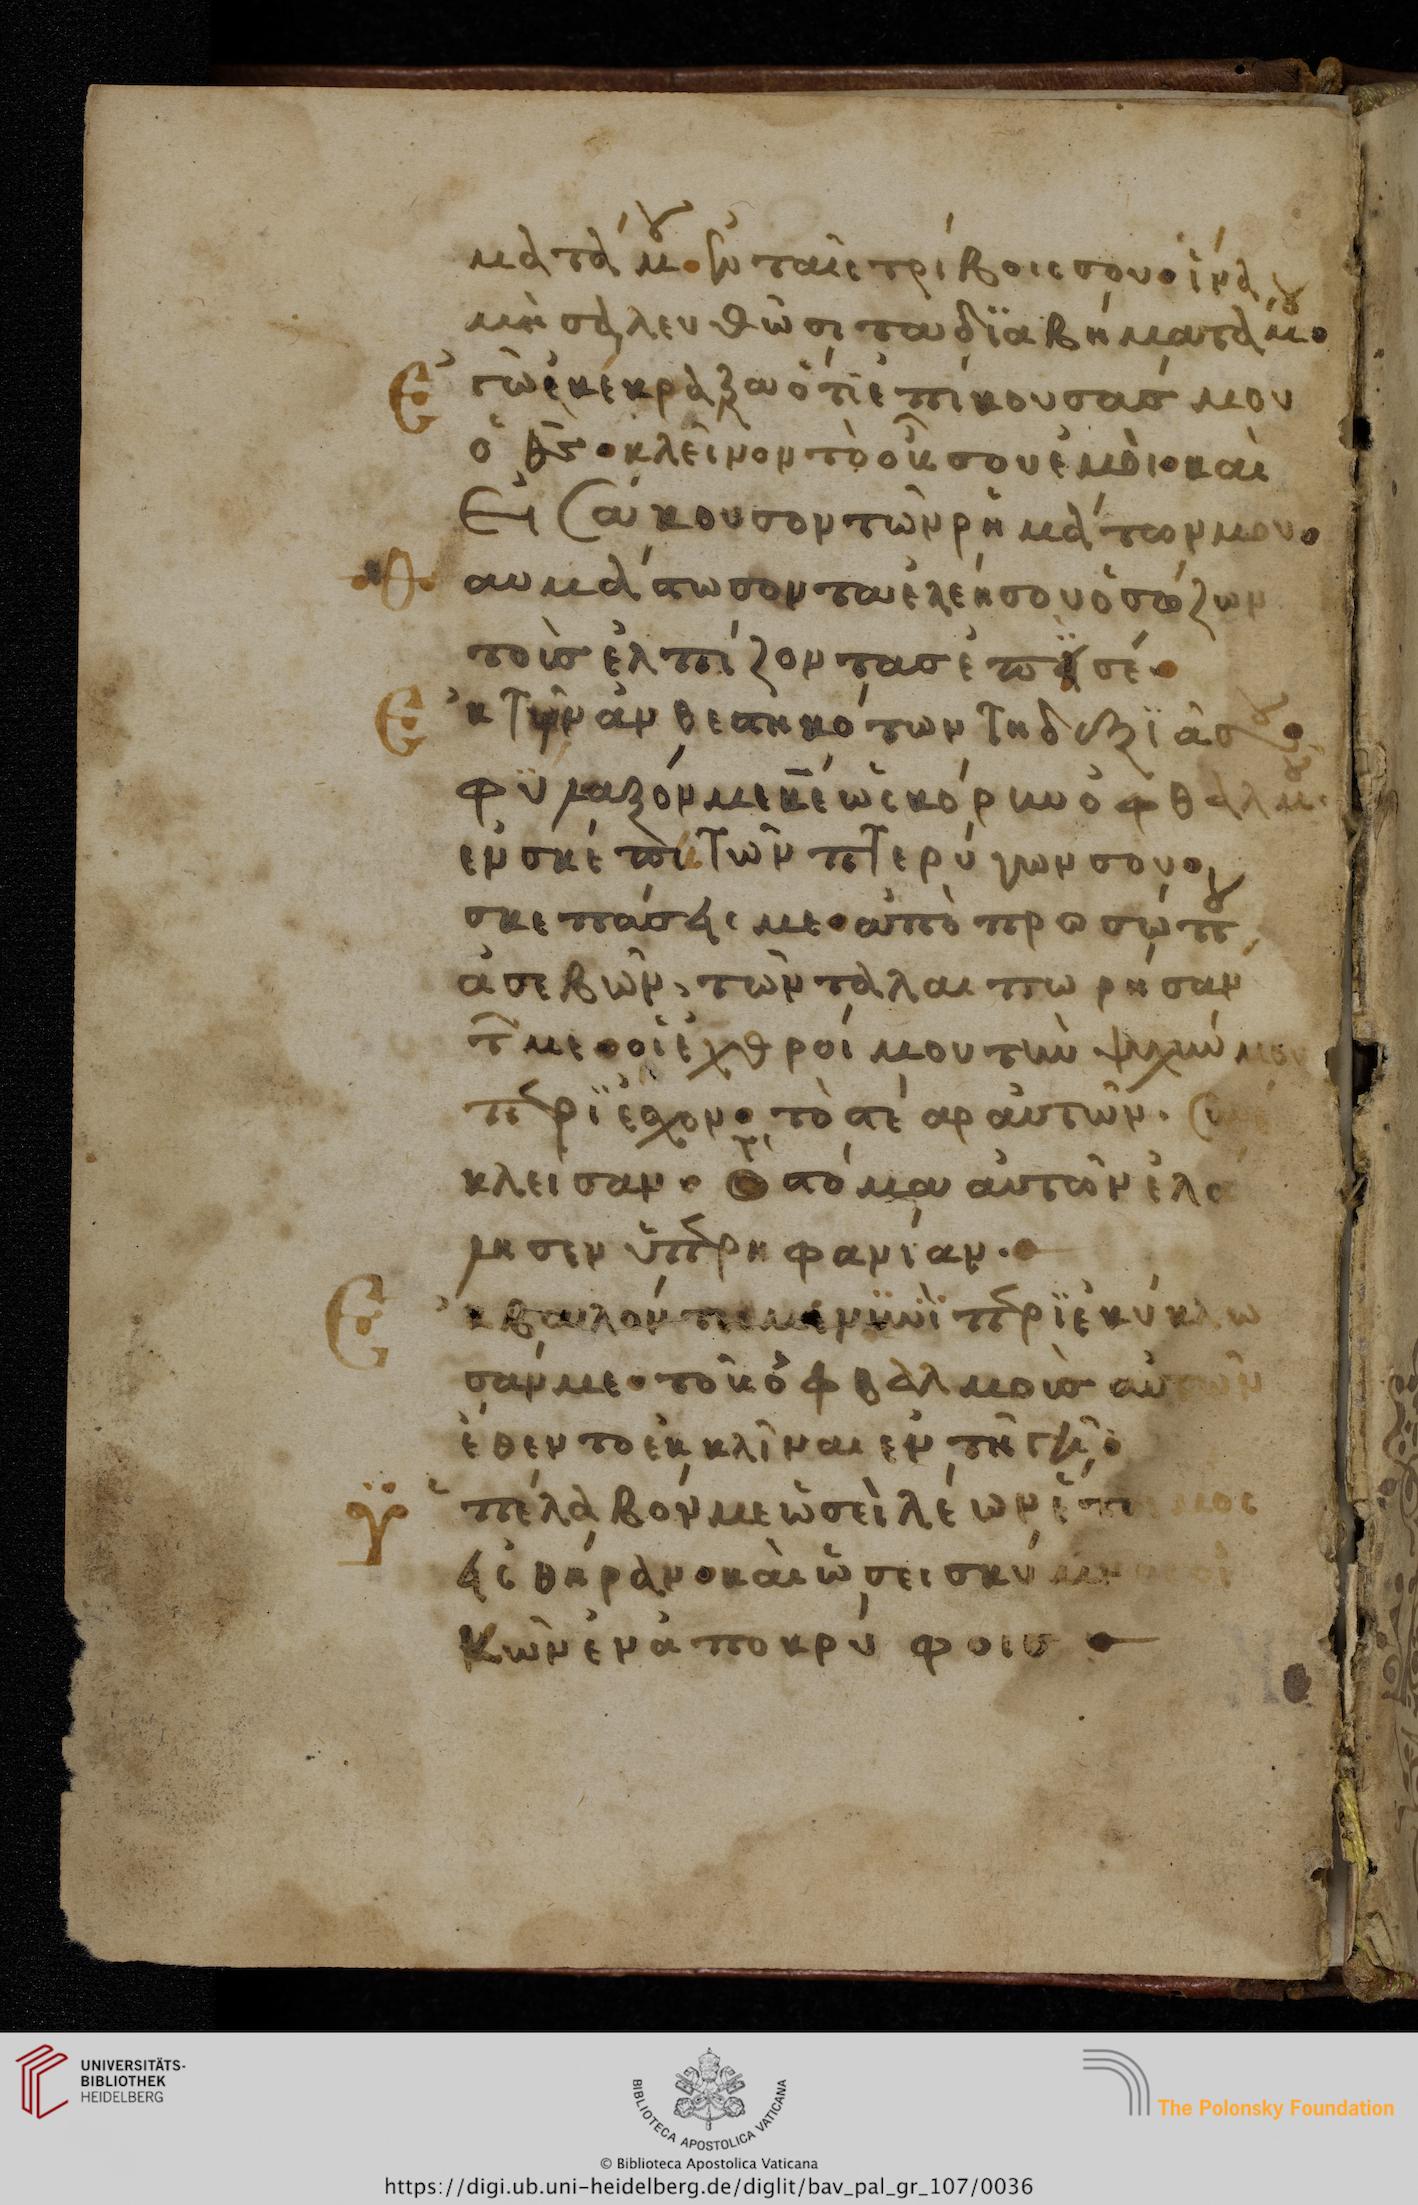 ματά μου ἐν ταῖς τρίβοις σου· ἵνα
μὴ σαλευθῶσι τα διαβήματά μου·
Ἐγὼ ἐκέκραξα ὅτι ἐπίκουσάσ μου
ὁ θς· κλεῖνον τὸ οὖς σου ἐμοὶ· και
Εἰσάκουσον τῶν ρημάτων μου·
Θαυμάστωσον τα ἐλέη σου ὁ σώζων
τοὺσ ἐλπίζοντασ ἐπὶ σέ·
Ἐκ τῶν ἀνθεστηκότων τη δεξιᾶ σου·
φύλαξόν με κε ὡς κόρην ὀφθαλμοῦ·
εν σκέπει τῶν πτερύγων σου·
σκεπάσεις με· ἀπὸ προσώπου
ἀσεβῶν, τῶν ταλαιπωρησάν
των με· οἱ ἐχθροί μου τὴν ψυχήν μου
περιέσχον· τὸ στέαρ αὐτῶν· συνέ
κλεισαν· τὸ στόμα αὐτῶν ἐλά
λησεν ὑπερηφανίαν·
Ἐκβαλόντες με νυνὶ περιεκύκλω
σάν με· τοὺς ὀφθαλμοὺσ αὐτῶν
ἔθεντο ἐκκλῖναι εν τῆ γῆ·
Ὑπέλαβόν με ὡσεὶ λέων ἕτοιμος
εἰς θήραν· καὶ ὡσει σκύμνος οἰ
κῶν ἐν ἀποκρύφοις
UNIVERSITÄTS-
BIBLIOTHEK
HEIDELBERG
BIBLIOTECA APOSTOLICA VATICANA
The Polonsky Foundation
© Biblioteca Apostolica Vaticana
https://digi.ub.uni-heidelberg.de/diglit/bav_pal_gr_107/0036